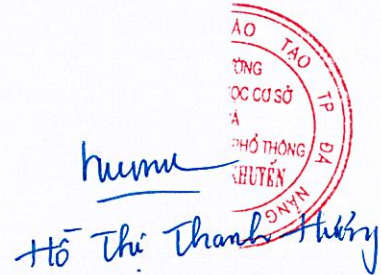 ÀO TẠO TP ĐÀ NẴNG
ỜNG
ỌC CƠ SỞ
À
PHỔ THÔNG
KHUYẾN
Hồ Thị Thanh Hương